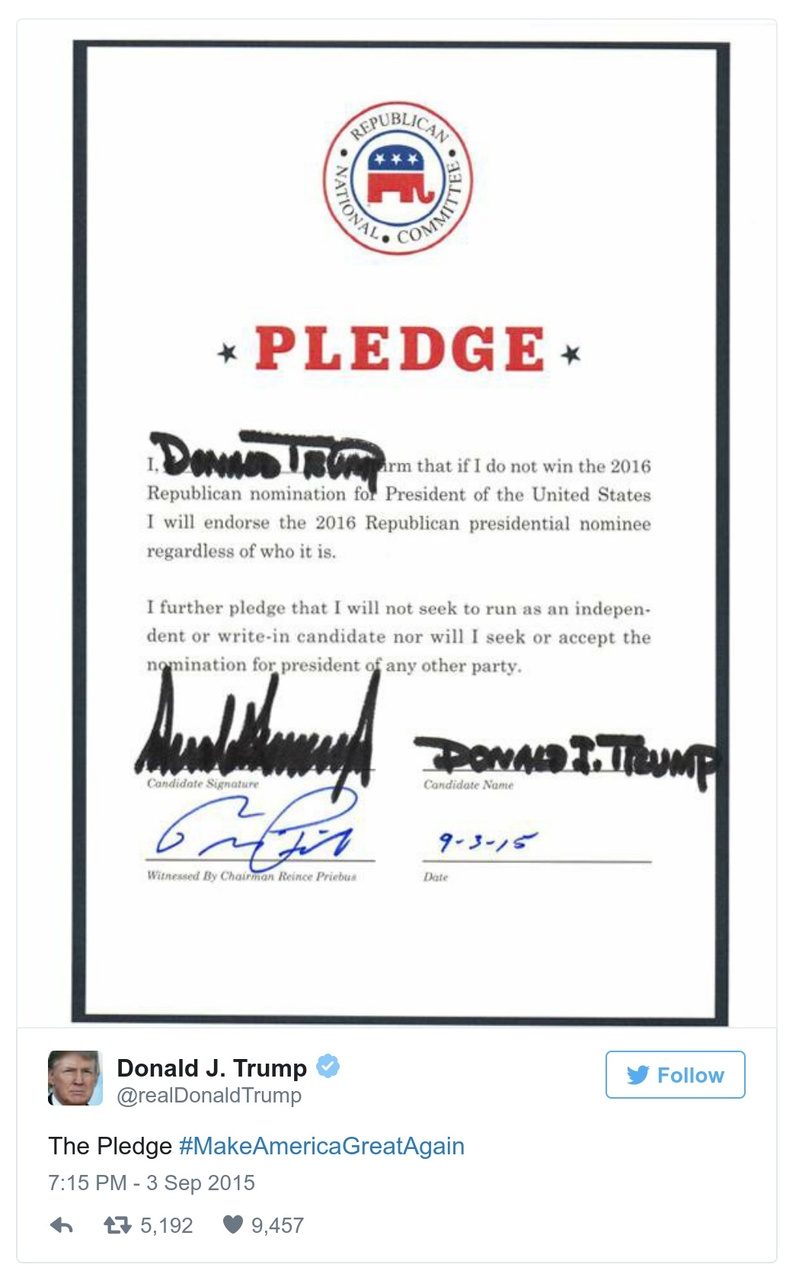 REPUBLICAN
NATIONAL COMMITTEE
PLEDGE
I, DONALD TRUMP irm that if I do not win the 2016
Republican nomination for President of the United States
I will endorse the 2016 Republican presidential nominee
regardless of who it is.
I further pledge that I will not seek to run as an indepen-
dent or write-in candidate nor will I seek or accept the
nomination for president of any other party.
DONALD J. TRUMP
Candidate Signature Candidate Name
9-3-15
Witnessed By Chairman Reince Priebus Date
Donald J. Trump
@realDonaldTrump
Follow
The Pledge #MakeAmericaGreatAgain
7:15 PM - 3 Sep 2015
5,192 9,457